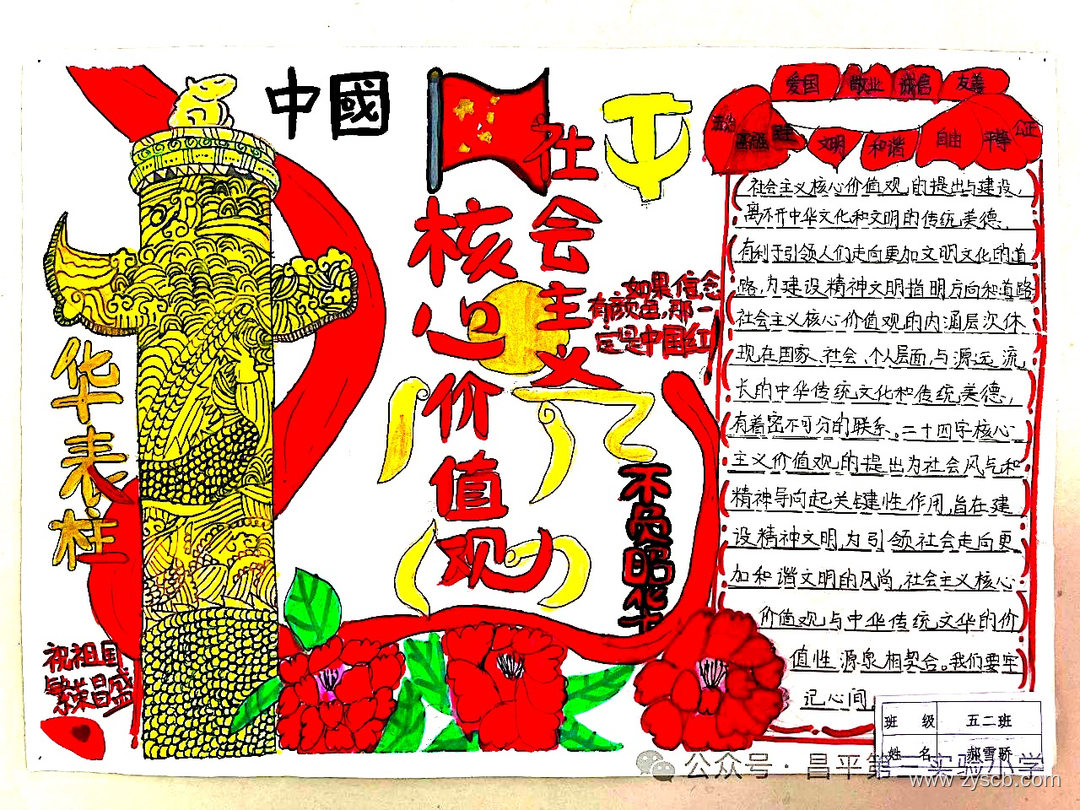 中國
社会主义
核心价值观
华表柱
如果信念
有颜色,那一
定是中国红
不负昭华
祝祖国
繁荣昌盛
爱国 敬业 诚信 友善
富强 民主 文明 和谐 自由 平等 公正
社会主义核心价值观的提出与建设,
离不开中华文化和文明的传统美德,
有利于引领人们走向更加文明文化的道
路,为建设精神文明指明方向和道路
社会主义核心价值观的内涵层次体
现在国家、社会、个人层面,与源远流
长的中华传统文化和传统美德,
有着密不可分的联系。二十四字核心
主义价值观的提出为社会风气和
精神导向起关键性作用,旨在建
设精神文明,为引领社会走向更
加和谐文明的风尚,社会主义核心
价值观与中华传统文华的价
值性源泉相契合。我们要牢
记心间
班 级 五二班
姓 名 郝雪骄
公众号·昌平第二实验小学
www.zyscb.com